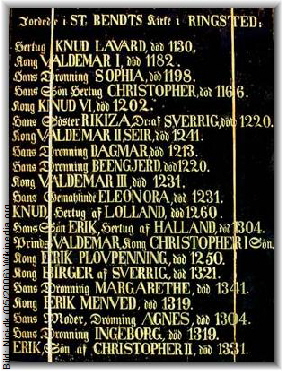 Jordede i ST. BENDTS Kirke i RINGSTED:
Hertug KNUD LAVARD, död 1130.
Kong VALDEMAR I, död 1182.
Hans Dronning SOPHIA, död 1198.
Hans Sön Hertug CHRISTOPHER, död 1166.
Kong KNUD VI, död 1202.
Hans Söster RIKIZA, Dr: af SVERRIG, död 1220.
Kong VALDEMAR II SEIR, död 1241.
Hans Dronning DAGMAR, död 1213.
Hans Dronning BEENGJERD, död 1220.
Kong VALDEMAR III, död 1231.
Hans Gemalinde ELEONORA, död 1231.
KNUD, Hertug af LOLLAND, död 1260.
Hans Sön ERIK, Hertug af HALLAND, död 1304.
Prinds VALDEMAR, Kong CHRISTOPHER I Sön.
Kong ERIK PLOVPENNING, död 1250.
Kong BIRGER af SVERRIG, död 1321.
Hans Dronning MARGARETHE, död 1341.
Kong ERIK MENVED, död 1319.
Hans Moder, Dronning AGNES, död 1304.
Hans Dronning INGEBORG, död 1319.
ERIK, Sön af CHRISTOPHER II, död 1331
Bild: Nici.dk (05/2006) Wikipedia.org